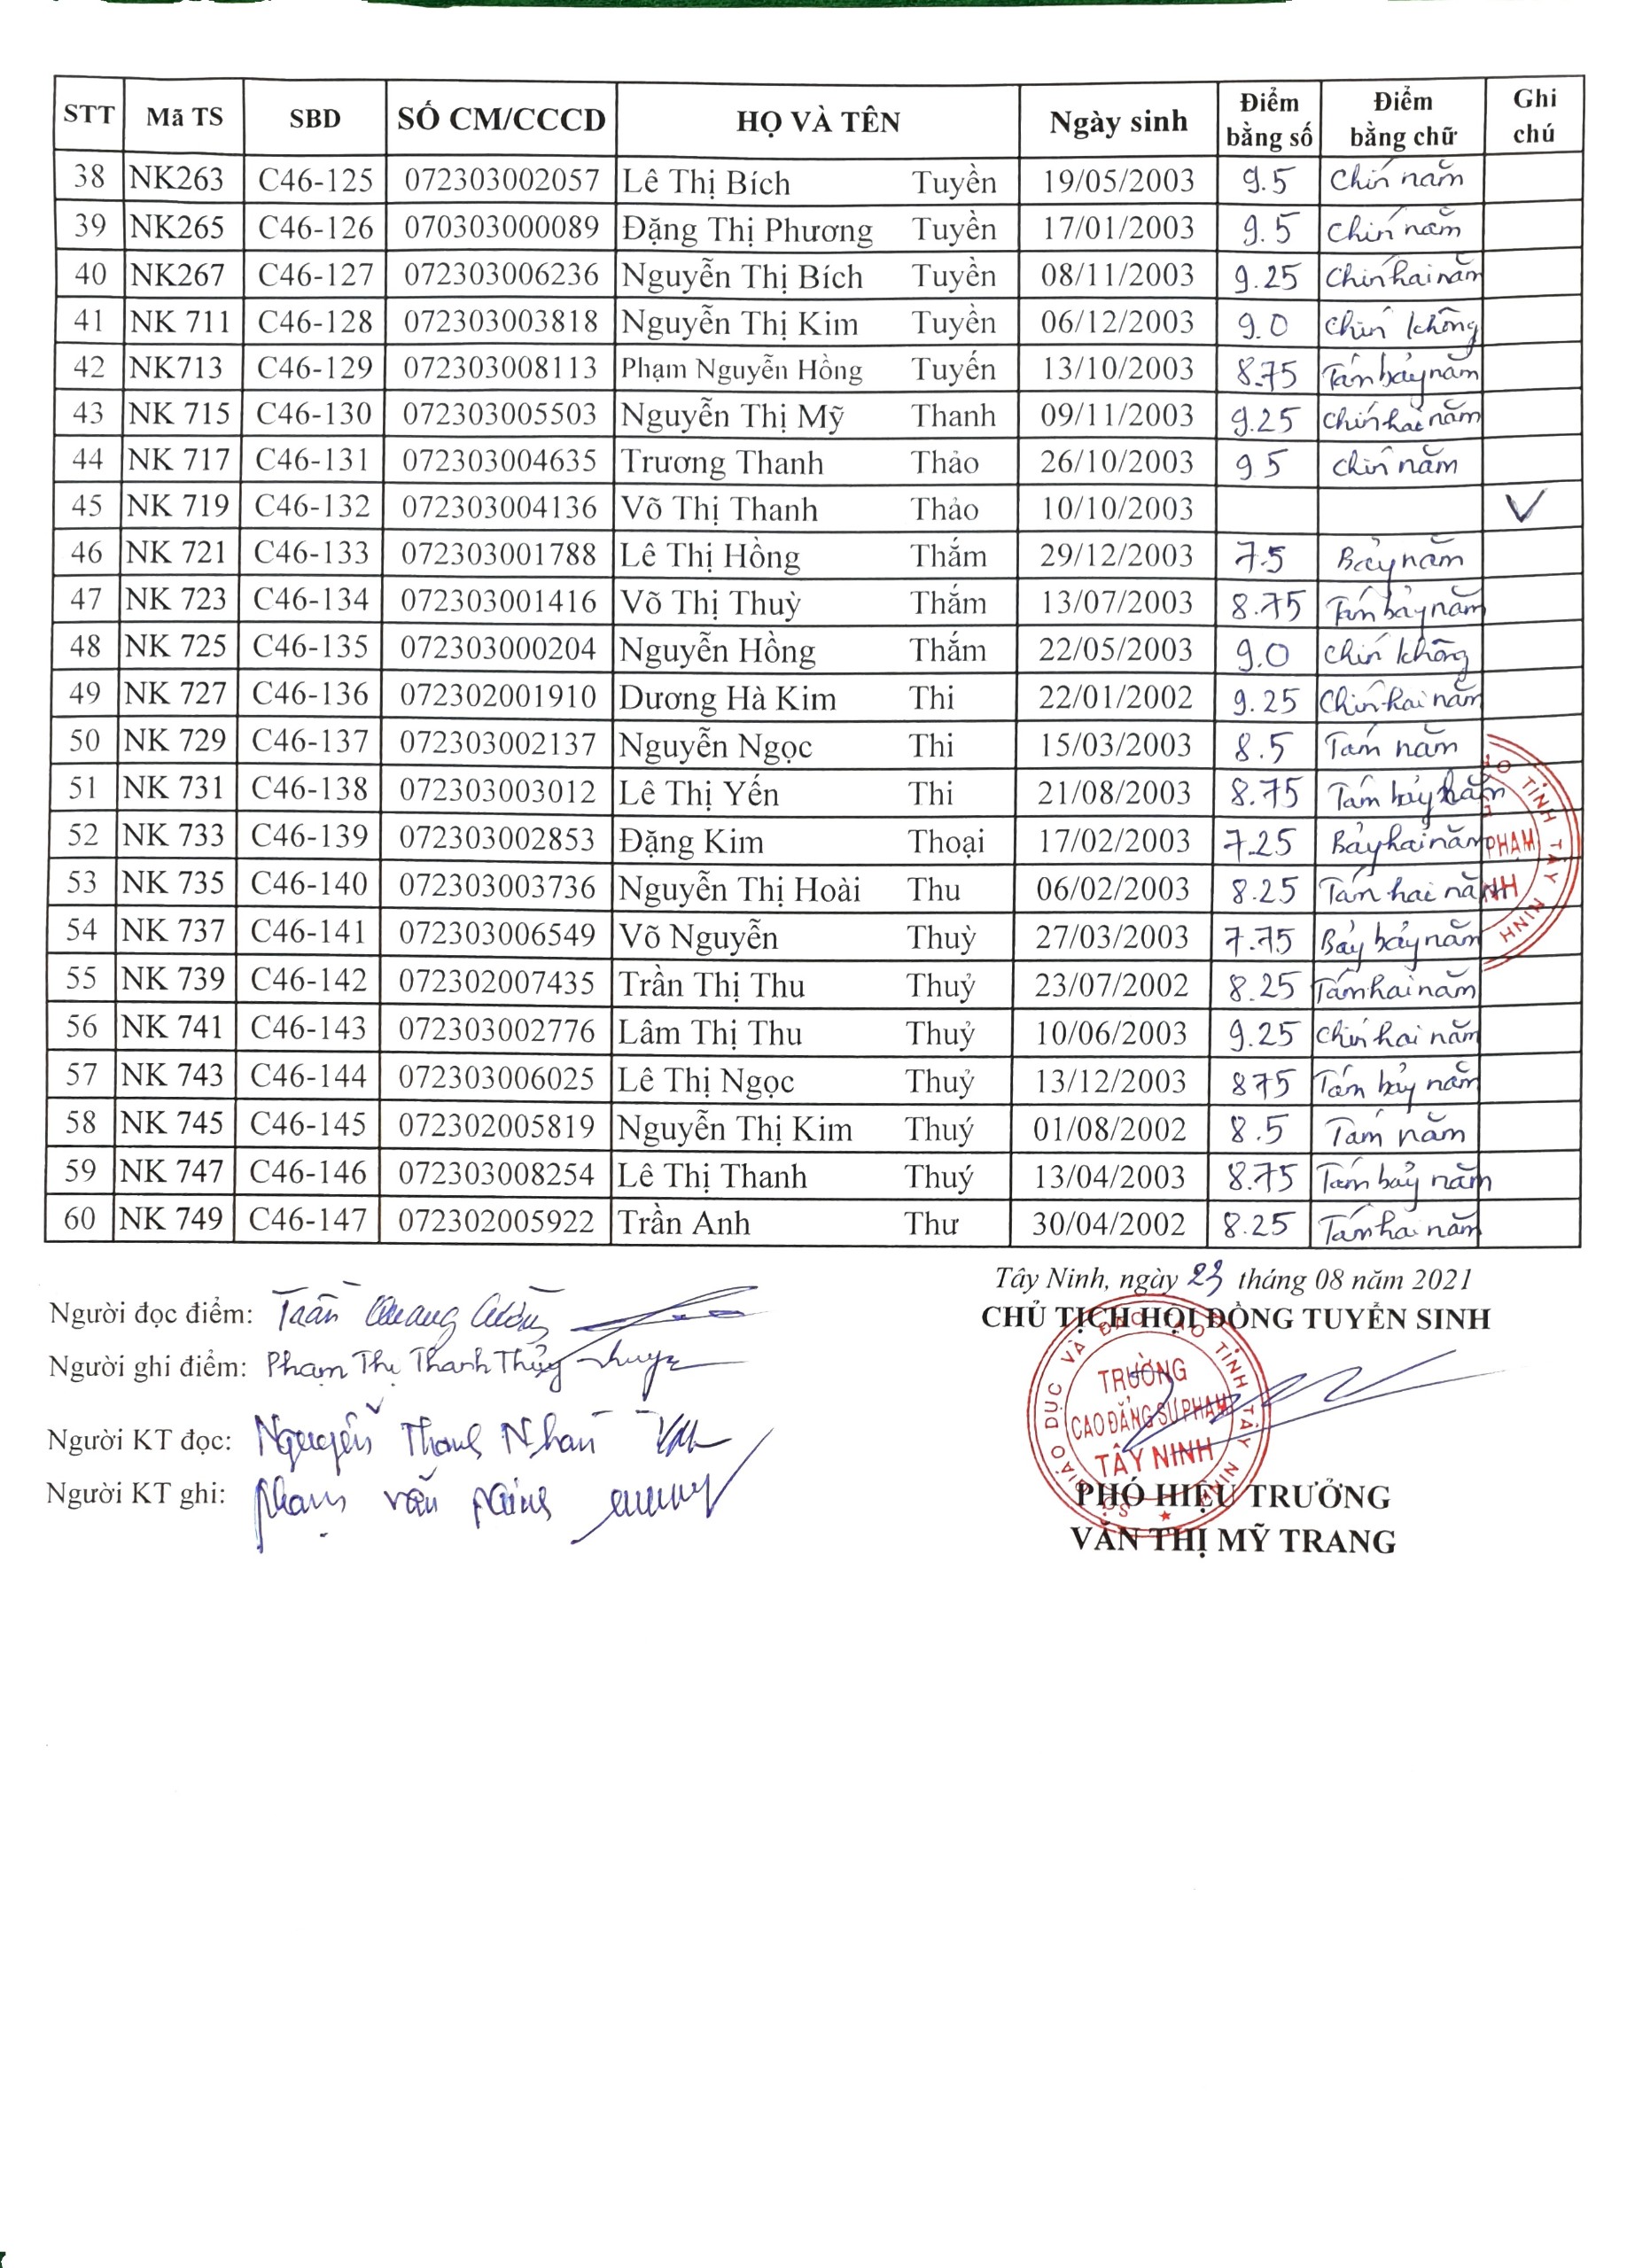 STT Mã TS SBD SỐ CM/CCCD HỌ VÀ TÊN Ngày sinh Điểm bằng số Điểm bằng chữ Ghi chú
38 NK263 C46-125 072303002057 Lê Thị Bích Tuyền 19/05/2003 9.5 Chín năm
39 NK265 C46-126 070303000089 Đặng Thị Phương Tuyền 17/01/2003 9.5 Chín năm
40 NK267 C46-127 072303006236 Nguyễn Thị Bích Tuyền 08/11/2003 9.25 Chín hai năm
41 NK 711 C46-128 072303003818 Nguyễn Thị Kim Tuyền 06/12/2003 9.0 Chín không
42 NK713 C46-129 072303008113 Phạm Nguyễn Hồng Tuyến 13/10/2003 8.75 Tám bảy năm
43 NK 715 C46-130 072303005503 Nguyễn Thị Mỹ Thanh 09/11/2003 9.25 Chín hai năm
44 NK 717 C46-131 072303004635 Trương Thanh Thảo 26/10/2003 95 Chín năm
45 NK 719 C46-132 072303004136 Võ Thị Thanh Thảo 10/10/2003 V
46 NK 721 C46-133 072303001788 Lê Thị Hồng Thắm 29/12/2003 7.5 Bảy năm
47 NK 723 C46-134 072303001416 Võ Thị Thuỳ Thắm 13/07/2003 8.75 Tám bảy năm
48 NK 725 C46-135 072303000204 Nguyễn Hồng Thắm 22/05/2003 9.0 Chín không
49 NK 727 C46-136 072302001910 Dương Hà Kim Thi 22/01/2002 9.25 Chín hai năm
50 NK 729 C46-137 072303002137 Nguyễn Ngọc Thi 15/03/2003 8.5 Tám năm
51 NK 731 C46-138 072303003012 Lê Thị Yến Thi 21/08/2003 8.75 Tám bảy năm
52 NK 733 C46-139 072303002853 Đặng Kim Thoại 17/02/2003 7.25 Bảy hai năm
53 NK 735 C46-140 072303003736 Nguyễn Thị Hoài Thu 06/02/2003 8.25 Tám hai năm
54 NK 737 C46-141 072303006549 Võ Nguyễn Thuỳ 27/03/2003 7.75 Bảy bảy năm
55 NK 739 C46-142 072302007435 Trần Thị Thu Thuỷ 23/07/2002 8.25 Tám hai năm
56 NK 741 C46-143 072303002776 Lâm Thị Thu Thuỷ 10/06/2003 9.25 Chín hai năm
57 NK 743 C46-144 072303006025 Lê Thị Ngọc Thuỷ 13/12/2003 875 Tám bảy năm
58 NK 745 C46-145 072302005819 Nguyễn Thị Kim Thuý 01/08/2002 8.5 Tám năm
59 NK 747 C46-146 072303008254 Lê Thị Thanh Thuý 13/04/2003 8.75 Tám bảy năm
60 NK 749 C46-147 072302005922 Trần Anh Thư 30/04/2002 8.25 Tám hai năm
Tây Ninh, ngày 23 tháng 08 năm 2021
CHỦ TỊCH HỘI ĐỒNG TUYỂN SINH
Người đọc điểm: Trần Quang
Người ghi điểm: Phạm Thị Thanh Thủy
Người KT đọc: Nguyễn Thanh Nhàn
Người KT ghi: Phạm văn
SỞ GIÁO DỤC VÀ ĐÀO TẠO TỈNH TÂY NINH
TRƯỜNG
CAO ĐẲNG SƯ PHẠM
TÂY NINH
PHÓ HIỆU TRƯỞNG
VĂN THỊ MỸ TRANG